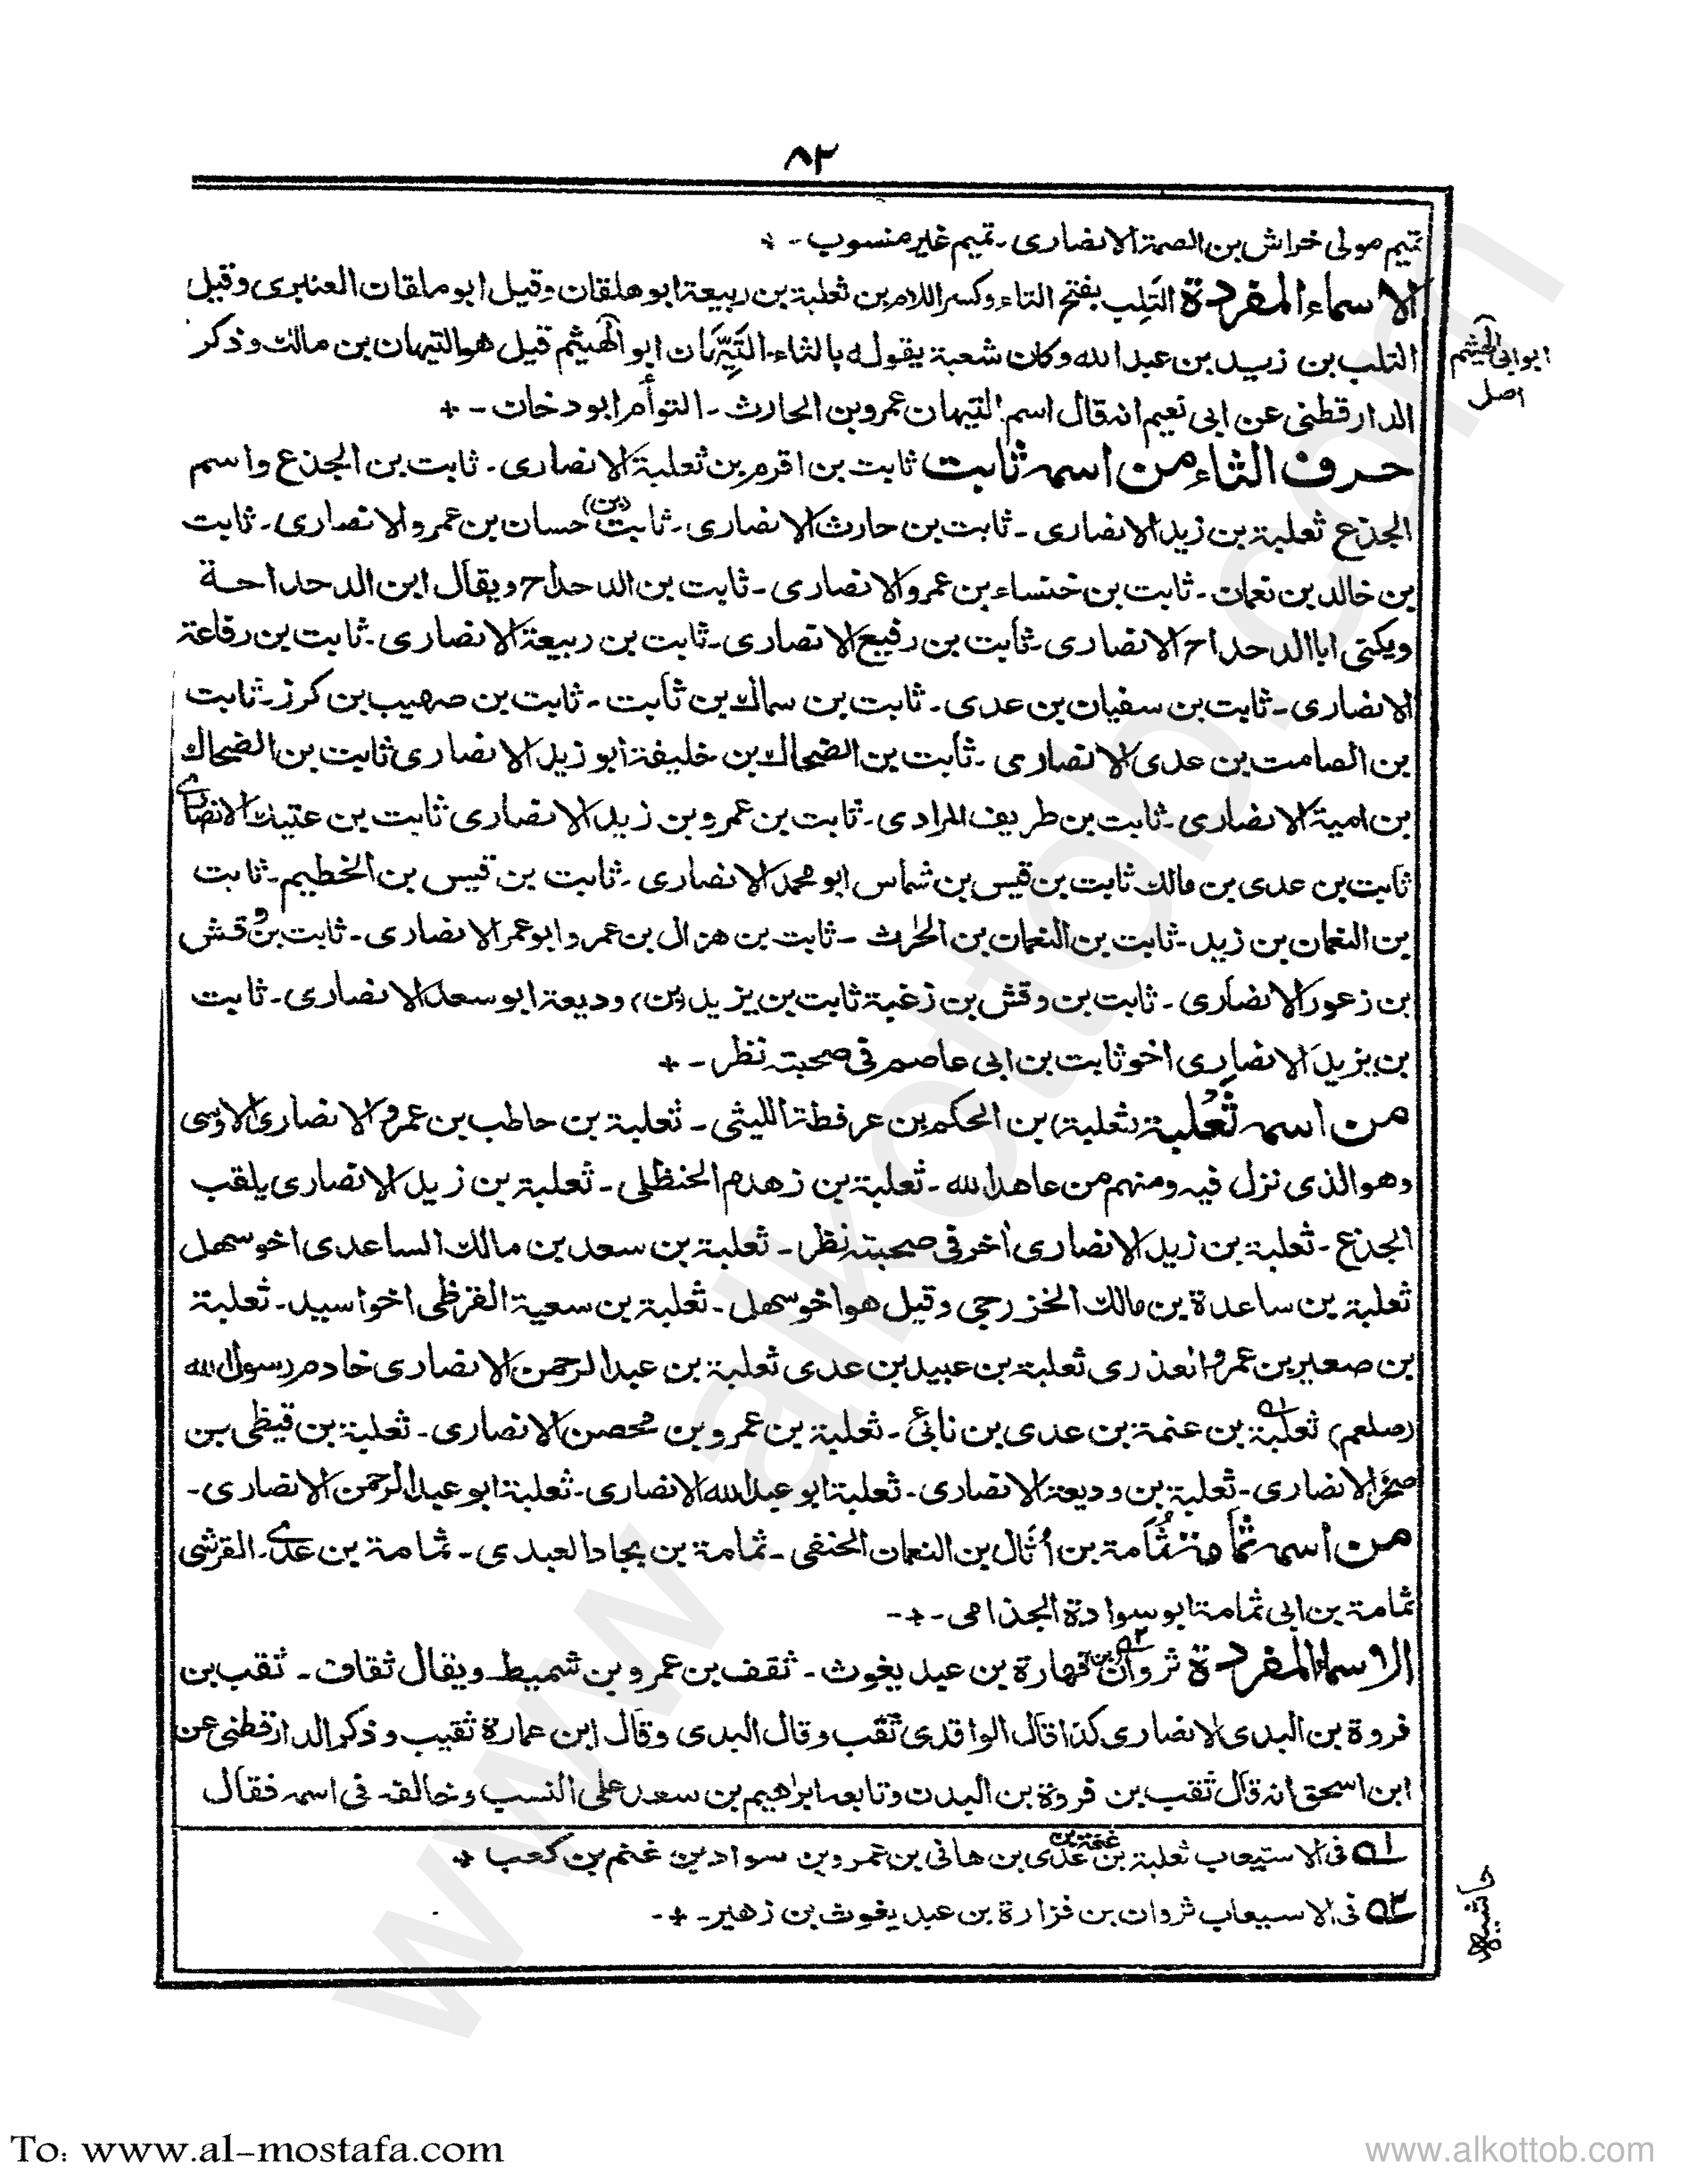 ٨٢
تميم مولى خراش بن الصمة الانصارى - تميم غير منسوب - +
الاسماء المفردة التَلِب بفتح التاء وكسر اللام بن ثعلبة بن ربيعة ابو هلقان وقيل ابو ملقان العنبرى وقيل
التلب بن زيد بن عبد الله وكان شعبة يقوله بالثاء - التَيِّهَان ابو الهيثم قيل هو التيهان بن مالك وذكر
ابو ابى الهيثم
اصل
الدارقطنى عن ابى نعيم انه قال اسم التيهان عمرو بن الحارث - التوأم ابو دخان - +
حرف الثاء من اسمه ثابت ثابت بن اقرم بن ثعلبة الانصارى - ثابت بن الجذع واسم
الجذع ثعلبة بن زيد الانصارى - ثابت بن حارث الانصارى - ثابت (بن) حسان بن عمرو الانصارى - ثابت
بن خالد بن نعمان - ثابت بن خنساء بن عمرو الانصارى - ثابت بن الدحداح ويقال ابن الدحداحة
ويكنى ابا الدحداح الانصارى - ثابت بن رفيع الانصارى - ثابت بن ربيعة الانصارى - ثابت بن رفاعة
الانصارى - ثابت بن سفيان بن عدى - ثابت بن سماك بن ثابت - ثابت بن صهيب بن كرز - ثابت
بن الصامت بن عدى الانصارى - ثابت بن الضحاك بن خليفة ابو زيد الانصارى ثابت بن الضحاك
بن امية الانصارى - ثابت بن طريف المرادى - ثابت بن عمرو بن زيد الانصارى ثابت بن عتيك الانصارى
ثابت بن عدى بن مالك ثابت بن قيس بن شماس ابو محمد الانصارى - ثابت بن قيس بن الخطيم - ثابت
بن النعمان بن زيد - ثابت بن النعمان بن الحرث - ثابت بن هزال بن عمر وابو عمر الانصارى - ثابت بن وقش
بن زعورا الانصارى - ثابت بن وقش بن زغبة ثابت بن يزيد (بن) وديعة ابو سعد الانصارى - ثابت
بن يزيد الانصارى اخو ثابت بن ابى عاصم فى صحبته نظر - +
من اسمه ثعلبة (ثعلبة) بن الحكم بن عرفطة الليثى - ثعلبة بن حاطب بن عمرو الانصارى الاوسى
وهو الذى نزل فيه ومنهم من عاهد الله - ثعلبة بن زهدم الحنظلى - ثعلبة بن زيد الانصارى يلقب
الجذع - ثعلبة بن زيد الانصارى آخر فى صحبته نظر - ثعلبة بن سعد بن مالك الساعدى اخو سهل
ثعلبة بن ساعدة بن مالك الخزرجى وقيل هو اخو سهل - ثعلبة بن سعية القرظى اخو اسيد - ثعلبة
بن صعير بن عمرو العذرى ثعلبة بن عبيد بن عدى ثعلبة بن عبد الرحمن الانصارى خادم رسول الله
(صلعم) ثعلبة ١ه بن عنمة بن عدى بن نابئ - ثعلبة بن عمرو بن محصن الانصارى - ثعلبة بن قيظى بن
صخر الانصارى - ثعلبة بن وديعة الانصارى - ثعلبة ابو عبد الله الانصارى - ثعلبة ابو عبد الرحمن الانصارى -
من اسمه ثمامة ثُمَامة بن اُثال بن النعمان الحنفى - ثمامة بن بجاد العبدى - ثمامة بن عدى القرشى
ثمامة بن ابى ثمامة ابو سوادة الجذامى - + -
الاسماء المفردة ثروان ٢ه (بن) فهارة بن عبد يغوث - ثقف بن عمرو بن شميط ويقال ثقاف - ثقب بن
فروة بن البدى الانصارى كذا قال الواقدى ثقب وقال البدى وقال ابن عمارة ثقيب وذكر الدارقطنى عن
ابن اسحق انه قال ثقب بن فروة بن البدن وتابعه ابراهيم بن سعد على النسب وخالفه فى اسمه فقال
١ه فى الاستيعاب ثعلبة بن عنمة بن عدى بن هانى بن عمرو بن سواد بن غنم بن كعب +
٢ه فى الاسيعاب ثروان بن فزارة بن عبد يغوث بن زهير - + -
حاشيه
To: www.al-mostafa.com
www.alkottob.com